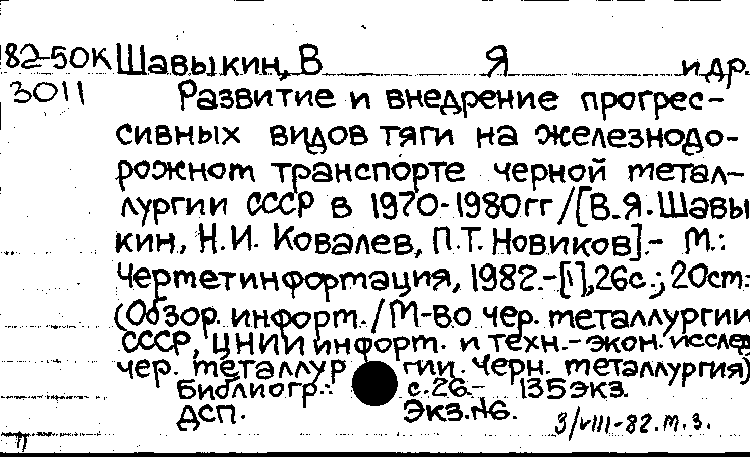 82-50К Шавыкин, В Я и др.
3011 Развитие и внедрение прогрес-
сивных видов тяги на железнодо-
рожном транспорте черной метал-
лургии СССР в 1970-1980гг /[В.Я.Шавы
кин, Н.И. Ковалев, П.Т. Новиков].- М.:
Черметинформация, 1982.-[1],26с.; 20см:
(Обзор. информ. / М-во чер. металлургии
СССР, ЦНИИ информ. и техн.-экон. исслед
чер. металлургии. Черн. металлургия)
Библиогр.: с.26.- 135экз.
ДСП. Экз.№6.
3/VIII-82.м.з.